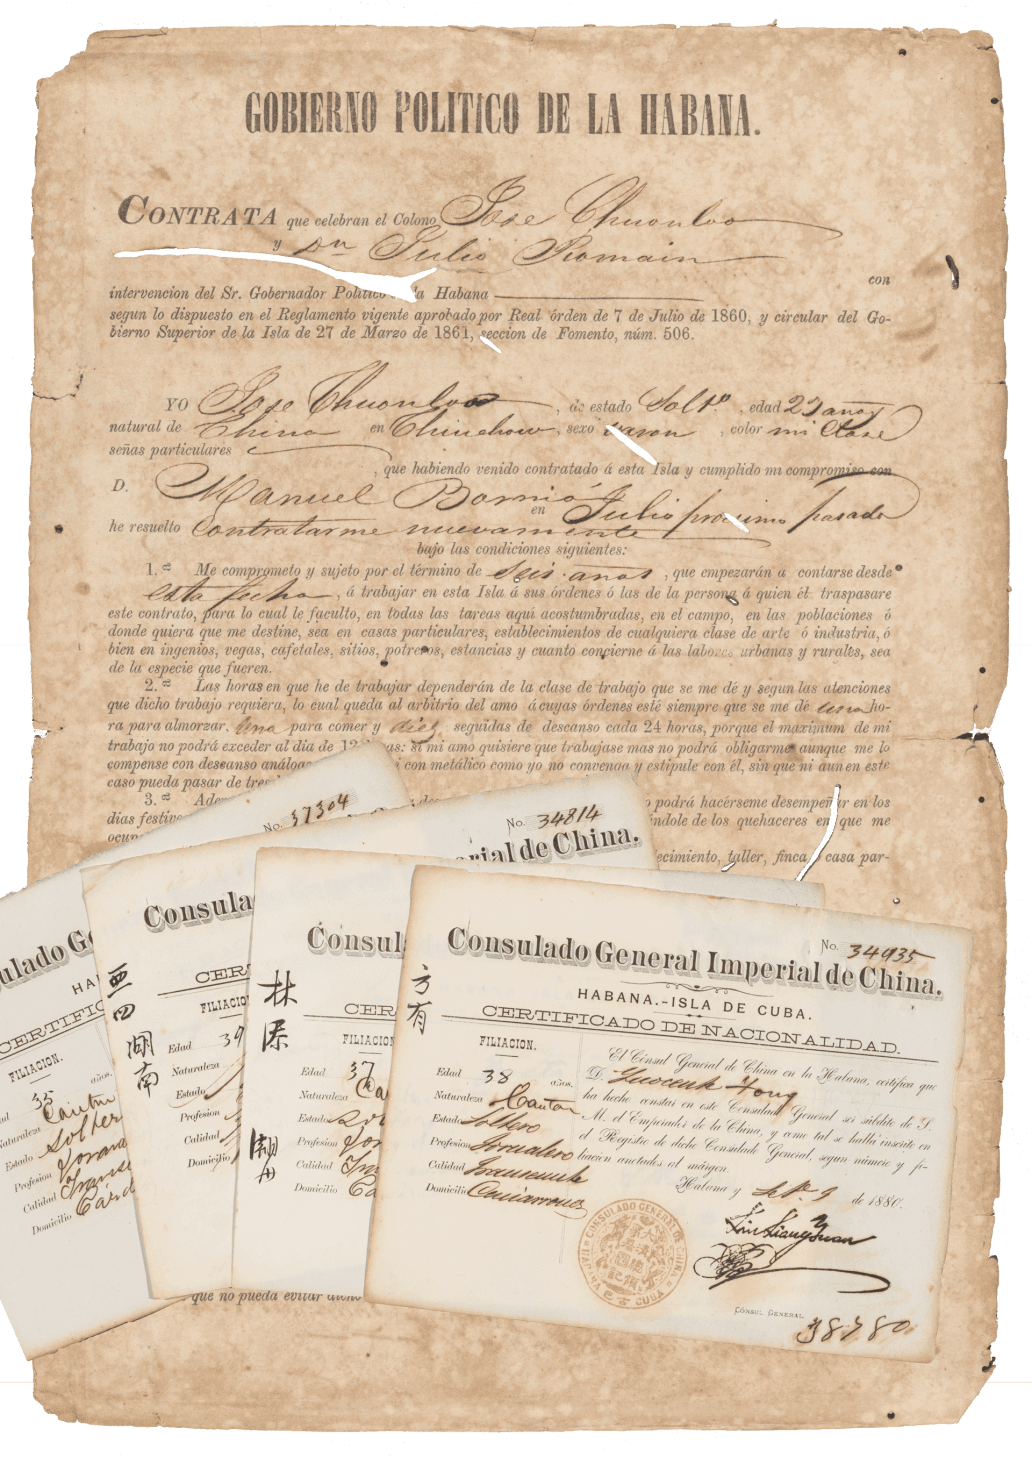 GOBIERNO POLITICO DE LA HABANA.
CONTRATA que celebran el Colono Jose Chuonloo
y Dn Julio Romain
con
intervencion del Sr. Gobernador Politico la Habana
segun lo dispuesto en el Reglamento vigente aprobado por Real órden de 7 de Julio de 1860, y circular del Go-
bierno Superior de la Isla de 27 de Marzo de 1861, seccion de Fomento, núm. 506.
YO Jose Chuonloo, de estado Solto, edad 27 años
natural de China en Chinchow, sexo varon, color mi clase
señas particulares
, que habiendo venido contratado á esta Isla y cumplido mi compromiso con
D. Manuel en Julio procsimo pasado
he resuelto Contratarme nuevamente
bajo las condiciones siguientes:
1.ª Me comprometo y sujeto por el término de seis años, que empezarán a contarse desde
esta fecha, á trabajar en esta Isla á sus órdenes ó las de la persona á quien él traspasare
este contrato, para lo cual le faculto, en todas las tareas aquí acostumbradas, en el campo, en las poblaciones ó
donde quiera que me destine, sea en casas particulares, establecimientos de cualquiera clase de arte ó industria, ó
bien en ingenios, vegas, cafetales, sitios, potreros, estancias y cuanto concierne á las labores urbanas y rurales, sea
de la especie que fueren.
2.ª Las horas en que he de trabajar dependerán de la clase de trabajo que se me dé y segun las atenciones
que dicho trabajo requiera, lo cual queda al arbitrio del amo á cuyas órdenes esté siempre que se me dé una ho-
ra para almorzar, una para comer y diez seguidas de descanso cada 24 horas, porque el maximum de mi
trabajo no podrá exceder al dia de 12 horas: si mi amo quisiere que trabajase mas no podrá obligarme aunque me lo
compense con descanso análogo con metálico como yo no convenga y estipule con él, sin que ni aun en este
caso pueda pasar de tres
3.ª podrá hacérseme desempeñar en los
dias festivos índole de los quehaceres en que me
ocup
ecimiento, taller, finca ó casa par-
que no pueda evitar
No. 37304
No. 34814
erial de China.
ulado Ge
HA
CERTIFIC
FILIACION.
ad 35 años.
Naturaleza Canton
Estado Solter
Profesion
Calidad
Domicilio Card
亜四
湖南
Consula
CER
FILIACION
Edad 39
Naturaleza
Estado
Profesion
Calidad
Domicilio
林
潮州
Consul
CER
FILIACION.
Edad 37
Naturaleza Ca
Estado
Profesion
Calidad
Domicilio Ca
方有
No. 34935
Consulado General Imperial de China.
HABANA.-ISLA DE CUBA.
CERTIFICADO DE NACIONALIDAD.
FILIACION.
Edad 38 años.
Naturaleza Canton
Estado Soltero
Profesion Jornalero
Calidad Transeunte
Domicilio
El Cónsul General de China en la Habana, certifica que
D. Guocenk Fong
ha hecho constar en este Consulado General ser súbdito de S.
M. el Emperador de la China, y como tal se halla inscrito en
el Registro de dicho Consulado General, segun número y fi-
liacion anotados al márgen.
Habana y Sete. 9 de 1880.
Liu Liang Yuan
CONSULADO GENERAL DE CHINA
HABANA CUBA
CÓNSUL GENERAL.
38780